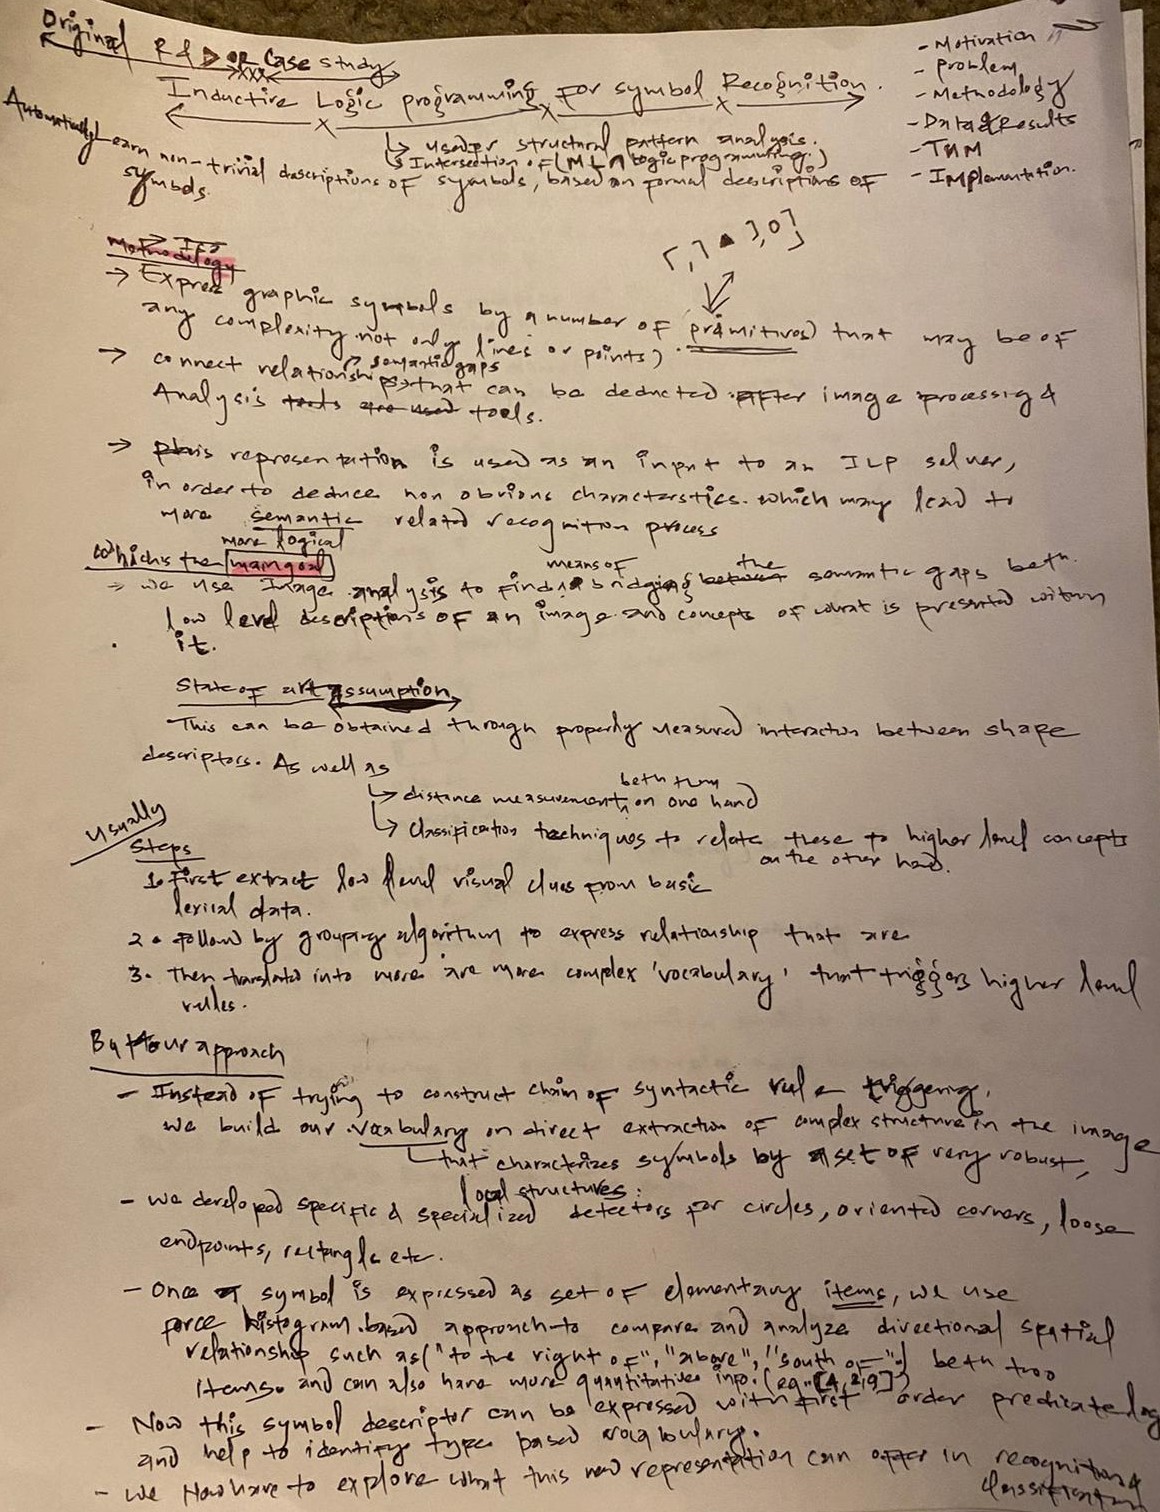 Original R & D or Case study
Inductive Logic programming for symbol Recognition.
- Motivation
- problem
- Methodology
- Data & Results
- Implementation.
↳ used for structural pattern analysis.
↳ Intersection of (ML ∩ logic programming.)
Automatically Learn non-trivial descriptions of symbols, based on formal descriptions of
symbols.
Methodology
→ Express graphic symbols by a number of (primitives) that may be of
any complexity not only lines or points).
→ connect relationships that can be deducted after image processing &
semantic gaps
Analysis tools are used tools.
→ this representation is used as an input to an ILP solver,
in order to deduce non obvious characterstics. which may lead to
more semantic related recognition process
more logical
which is the main goal
→ we use Image analysis to find means of bridging the semantic gaps betn
low level descriptions of an image and concepts of what is presented within
it.
State of art assumption
This can be obtained through properly measured interaction between shape
descriptors. As well as
↳ distance measurements betn them on one hand
↳ classification techniques to relate these to higher level concepts
on the other hand.
Usually
Steps
1. First extract low level visual clues from basic
lexical data.
2. follow by grouping algorithm to express relationship that are
3. Then translated into more are more complex 'vocabulary' that triggers higher level
rules.
But our approach
- Instead of trying to construct chain of syntactic rule triggering,
we build our vocabulary on direct extraction of complex structure in the image
that characterizes symbols by a set of very robust,
local structures:
- we developed specific & specialized detectors for circles, oriented corners, loose
endpoints, rectangle etc.
- Once a symbol is expressed as set of elementary items, we use
force histogram based approach to compare and analyze directional spatial
relationship such as ("to the right of", "above", "south of") betn two
items. and can also have more quantitative info. (eg-
- Now this symbol descriptor can be expressed with first order predicate log
and help to identify type based vocabulary.
- we Now have to explore what this new representation can offer in recognition &
classification